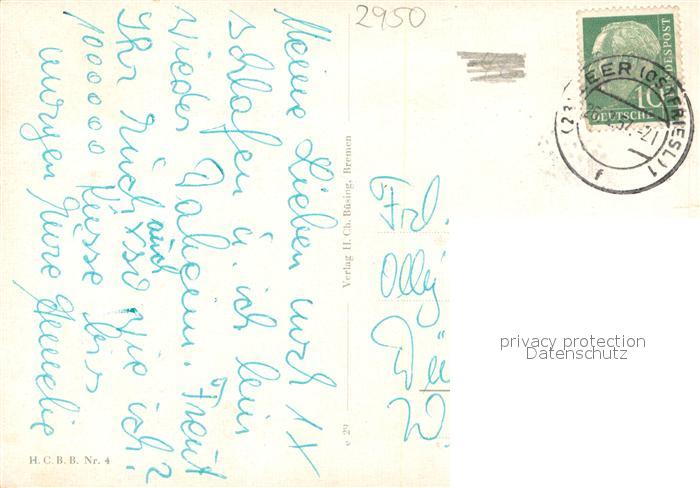 2950
Meine Lieben noch 1 X
schlafen u. ich bin
wieder Daheim. Freut
Ihr Euch auch so wie ich?
100000 Küsse bis
morgen Eure
Verlag H. Ch. Büsing, Bremen
e 29
H. C. B. B. Nr. 4
Frl.
Olly
(23) LEER (OSTFRIESL) 1
f
10
DEUTSCHE BUNDESPOST
privacy protection
Datenschutz